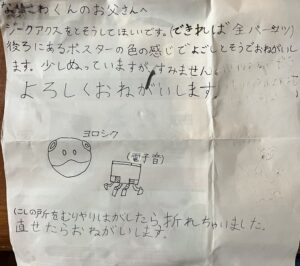 くんのお父さんへ
ジークアクスをとそうしてほしいです。(できれば全パーツ)
後ろにあるポスターの色の感じでよごしとそうでおねがいし
ます。少しぬっていますが、すみません。
よろしくおねがいします
ヨロシク
(電子音)
(にしの所をむりやりはがしたら、折れちゃいました。
直せたらおねがいします。